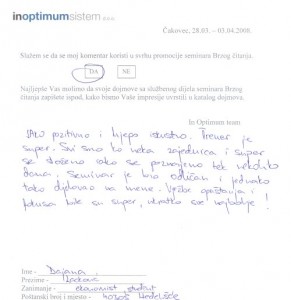 inoptimumsistem d.o.o.
Čakovec, 28.03. – 03.04.2008.
Slažem se da se moj komentar koristi u svrhu promocije seminara Brzog čitanja.
DA NE
Najljepše Vas molimo da svoje dojmove sa službenog dijela seminara Brzog
čitanja zapišete ispod, kako bismo Vaše impresije uvrstili u katalog dojmova.
In Optimum team
JAKO pozitivno i lijepo iskustvo. Trener je
super. Svi smo ko neka zajednica i super
se slažemo iako se poznajemo tek nekoliko
dana. Seminar je bio odličan i jednako
tako djelovao na mene. Vježbe opuštanja i
fokusa bile su super, ukratko sve najbolje!
Ime - Dajana
Prezime -
Zanimanje - ekonomist, student
Poštanski broj i mjesto - 40305 Nedelišće